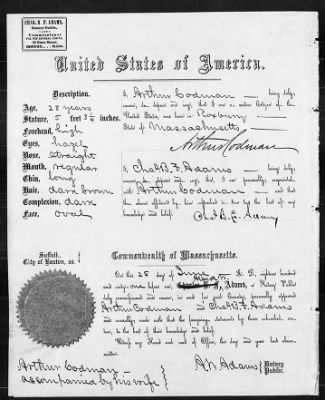 CHAS. B. F. ADAMS,
Notary Public,
BOSTON, MASS.
United States of America.
Description.
Age, 28 years
Stature, 5 feet 8½ inches
Forehead, high
Eyes, hazel
Nose, straight
Mouth, regular
Chin, long
Hair, dark brown
Complexion, dark
Face, oval
I, Arthur Codman — being duly
sworn, do depose and say, that I am a native Citizen of the
United States, and born in Roxbury
State of Massachusetts —
Arthur Codman
I, Chas B. F. Adams — being duly
sworn, do depose and say, that I am personally acquainted
with Arthur Codman — and that
the above affidavit by him subscribed is true to the best of my
knowledge and belief.
Chas B. F. Adams
Suffolk,
City of Boston, ss.
Commonwealth of Massachusetts.
On this 25 day of June A. D. eighteen hundred
and eighty-one before me, Adams, a Notary Public
duly commissioned and sworn, in and for said County, personally appeared
Arthur Codman and Chas B F Adams
and severally made oath that the foregoing statements by them subscribed
are true, to the best of their knowledge and belief.
Witness my Hand and seal of Office, the day and year last above
written.
A. N. Adams Notary
Public.
Arthur Codman —
accompanied by his wife